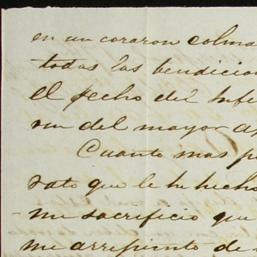 en un corazon colma
todas las bendicion
el pecho del infe
on del mayor a
Cuanto mas p
rato que le he hecho
me sacrificio que
me arrepiento de